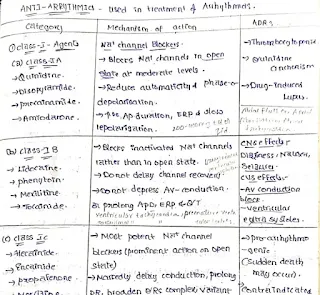 ANTI-ARRHYTHMICS - Used in treatment of Arrhythmias.
Category
Mechanism of action
ADRs
(1) class-I-Agents
(A) class-IA
→ Quinidine.
→ Disopyramide.
→ procainamide.
→ Amiodarone.
Na+ channel Blockers:
→ Blocks Na+ channels in open
state at moderate levels.
→ Reduce automaticity & phase-0
depolarisation.
AP duration, ERP & slow
repolarization.
→ Thrombocytopenia
→ Quinidine
cinchonism
→ Drug-Induced
Lupus.
(B) class-1B
→ Lidocaine.
→ phenytoin.
→ Mexiletine
→ Tocainide.
→ Blocks inactivated Na+ channels
rather than in open state.
→ Do not delay channel recovery
→ Do not depress AV-conduction.
or prolong APD, ERP & Q/T
ventricular tachycardia,
CNS effects:
Dizziness, Nausea,
Seizures.
CVS effects:
→ AV conduction
block.
→ ventricular
extra systoles.
(C) class Ic
→ Flecainide.
→ Encainide
→ propafenone
→ Most potent Na+ channel
blockers (prominent action on open
state)
→ Markedly delay conduction, prolong
PR, broaden QRS complex, variant
→ pro-arrhythmo
genic
(sudden death
may occur).
→ contraindicated